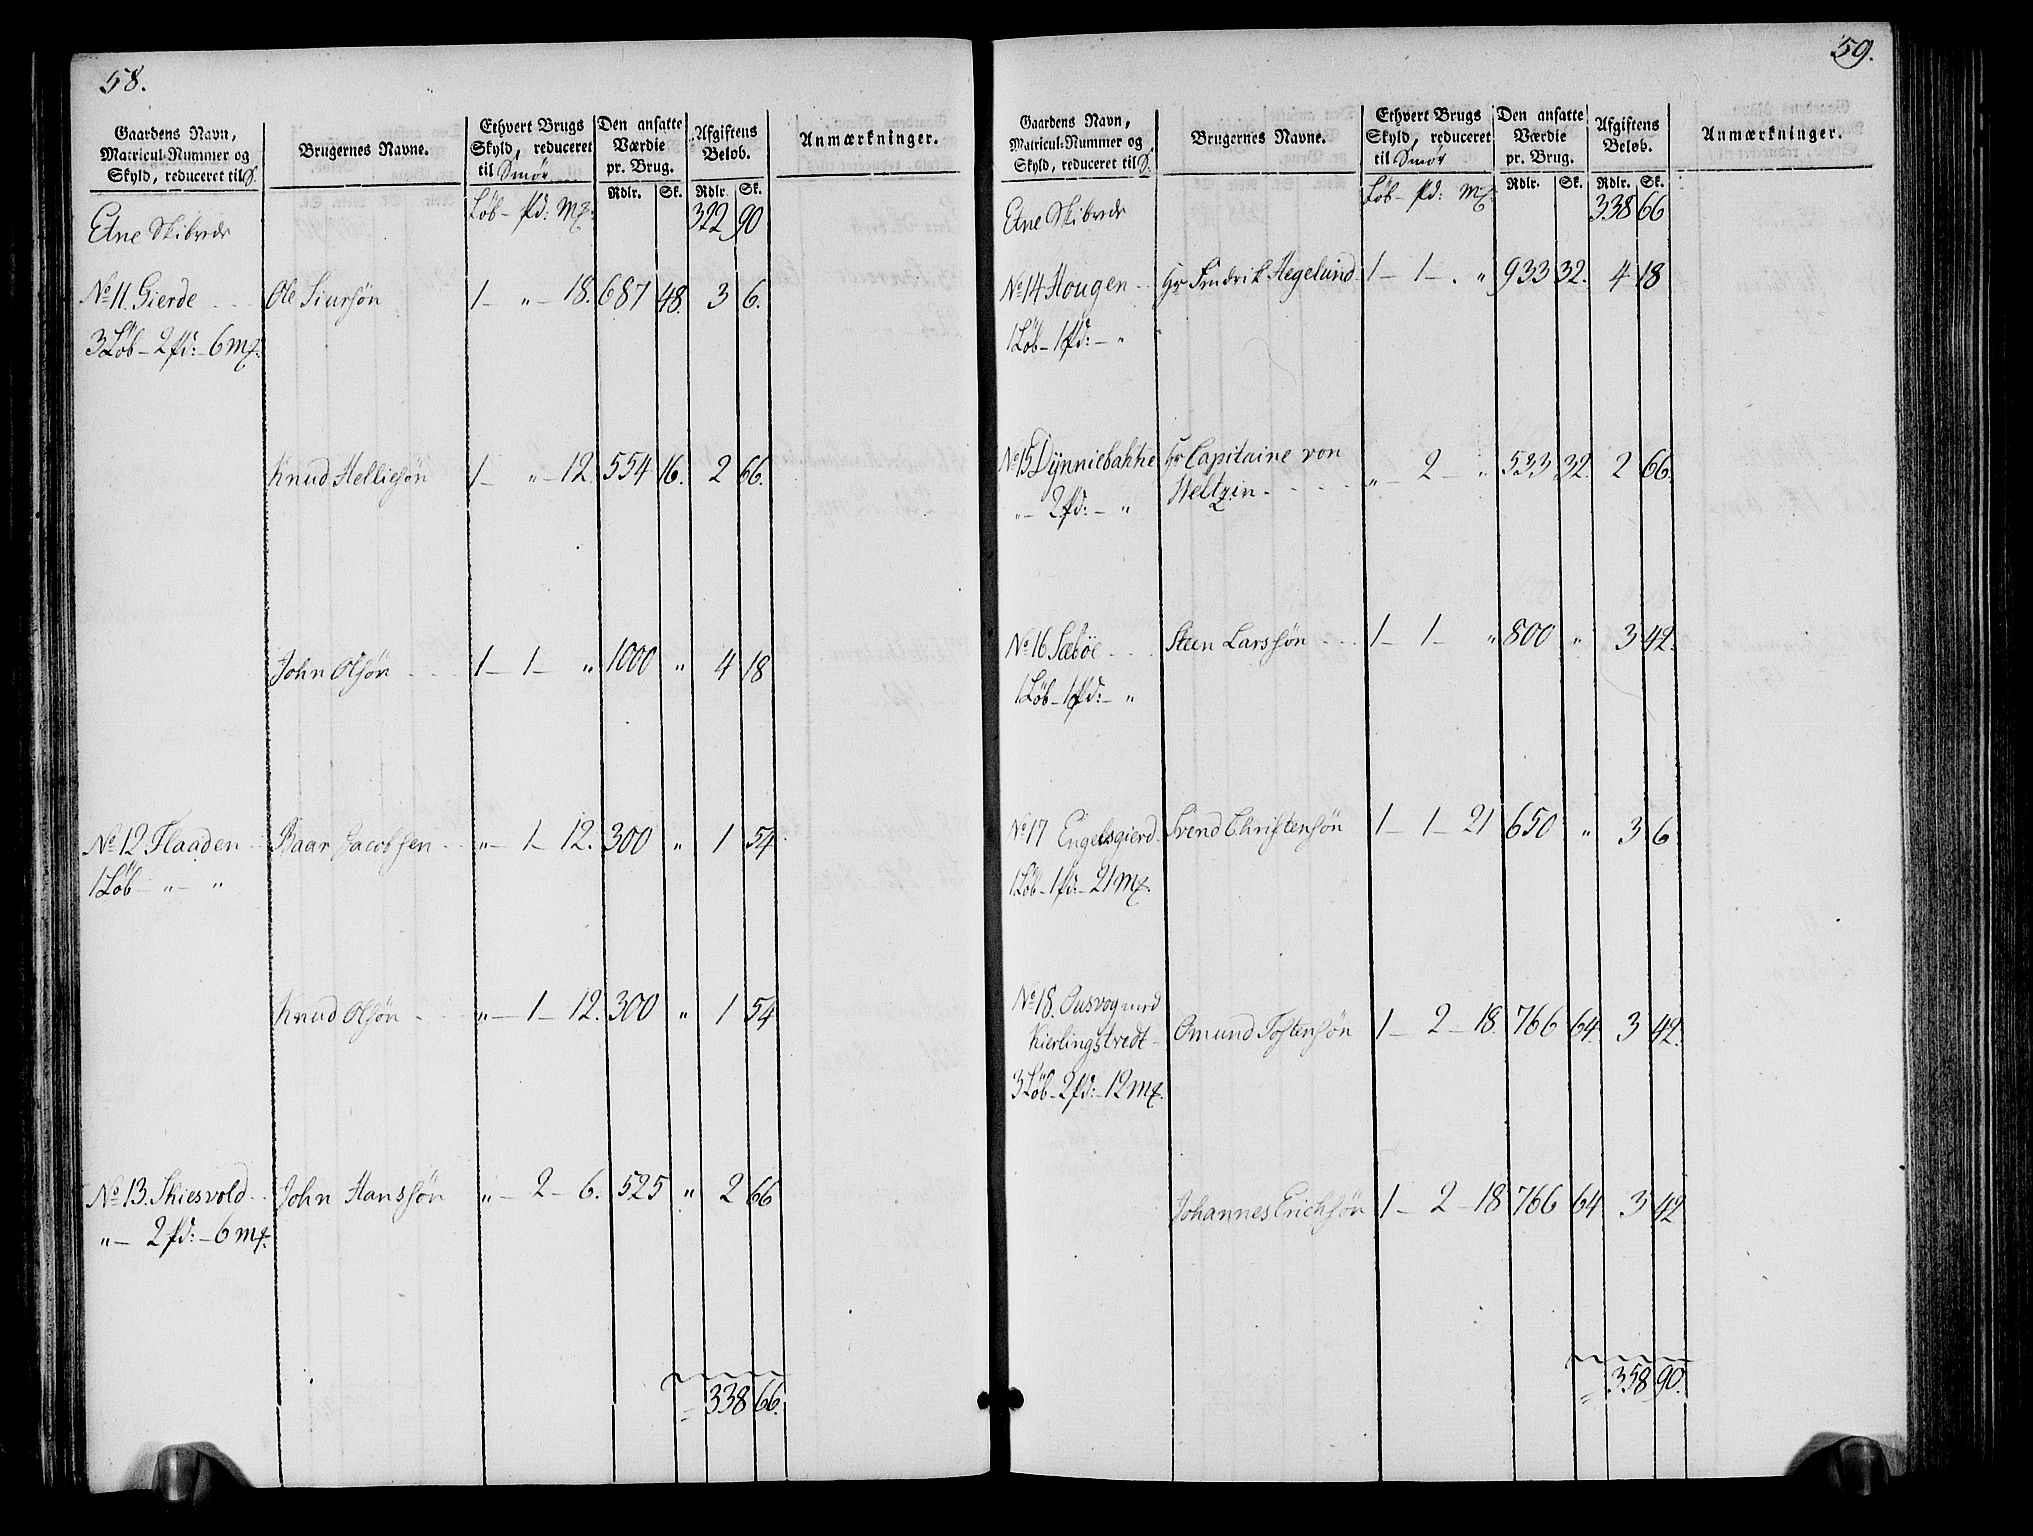 58.
Gaardens Navn, Matricul-Nummer og Skyld, reduceret til S.
Brugernes Navne.
Ethvert Brugs Skyld, reduceret til Smör
Den ansatte Værdie pr. Brug.
Afgiftens Beløb.
Anmærkninger.
Rdlr. Sk. Rdlr. Sk.
Etne Skibrede Løb - pd: mk. 322 90
No 11 Gierde Ole Siursøn 1 - " - 18. 687 48. 3 6.
3 Løb - 2 pd: - 6 mk.
Knud Helliesøn 1 - " - 12. 554 16. 2 66.
John Olsøn 1 - 1 - " 1000 " 4 18
No 12 Flaaden Baar Jacobsen " - 1 - 12. 300 " 1 54
1 Løb - " - "
Knud Olsøn " - 1 - 12. 300 " 1 54
No 13 Skiesvold John Hanssøn " - 2 - 6. 525 " 2 66
" - 2 pd: - 6 mk.
338 66.
59.
Gaardens Navn, Matricul-Nummer og Skyld, reduceret til S.
Brugernes Navne.
Ethvert Brugs Skyld, reduceret til Smör
Den ansatte Værdie pr. Brug.
Afgiftens Beløb.
Anmærkninger.
Rdlr. Sk. Rdlr. Sk.
Etne Skibrede Løb - pd: mk. 338 66
No 14 Hougen Hr Fredrik Hegelund 1 - 1 - " 933 32. 4 18
1 Løb - 1 pd: - "
No 15 Dÿnniebakke Hr Capitaine von
Heltzin " - 2 - " 533 32. 2 66.
" - 2 pd: - "
No 16 Sæböe Steen Larssøn 1 - 1 - " 800 " 3 42.
1 Løb - 1 pd: - "
No 17 Engelsgierd Svend Christensøn 1 - 1 - 21 650 " 3 6
1 Løb - 1 pd: - 21 mk.
No 18. Ousvog med
Kierlingstvedt Omund Tostensøn 1 - 2 - 18. 766 64. 3 42.
3 Løb - 2 pd: - 12 mk.
Johannes Erichsøn 1 - 2 - 18 766 64 3 42
358 90.